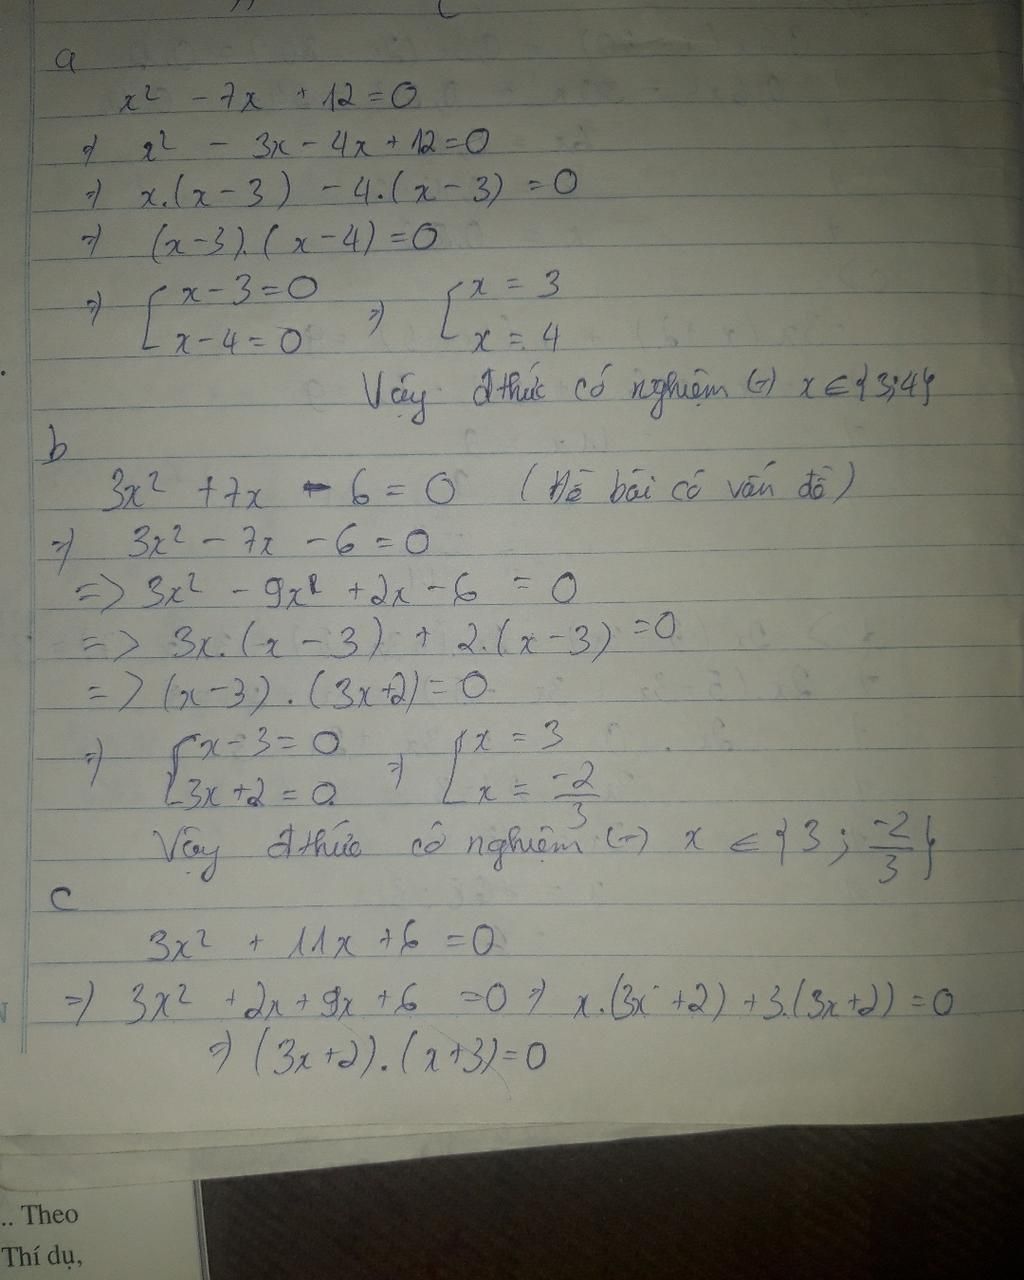 a
x² - 7x + 12 = 0
=) x² - 3x - 4x + 12 = 0
=) x.(x - 3) - 4.(x - 3) = 0
=) (x-3).(x - 4) = 0
=) [ x - 3 = 0 =) [ x = 3
x - 4 = 0 x = 4
Vậy đthức có nghiệm (=) x ∈ {3;4}
b
3x² + 7x - 6 = 0 (Đề bài có vấn đề)
=) 3x² - 7x - 6 = 0
=> 3x² - 9x + 2x - 6 = 0
=> 3x.(x - 3) + 2.(x - 3) = 0
=> (x-3).(3x+2) = 0
=) [ x - 3 = 0 =) [ x = 3
3x + 2 = 0 x = -2/3
Vậy đthức có nghiệm (=) x ∈ {3; -2/3}
c
3x² + 11x + 6 = 0
=) 3x² + 2x + 9x + 6 = 0 =) x.(3x + 2) + 3.(3x+2) = 0
=) (3x+2).(x+3) = 0
.. Theo
Thí dụ,